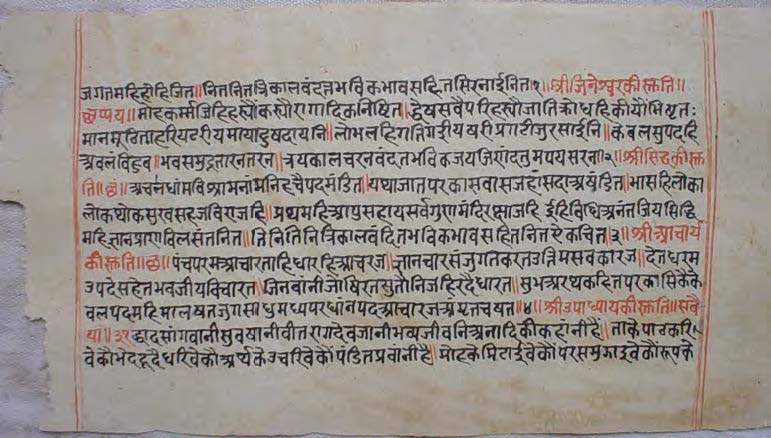 जगतमहिहोहिजित॥नितनितत्रिकालवंदतभविकभावसहितसिरनाईनित॥१॥श्रीजिनेश्वरकीस्तुति॥
छप्पय॥मोहकर्म्मजिहिहस्यौकस्यौरागादिकनिश्चित॥द्वेषसवैपरिहस्यौजातिक्रोधहिकीयौ
मानमूढिताहरियदरीयमायादुषदायनि॥लोभलहरिगतिगरीयषरीप्रगटीजुरसाईनि॥केवलसुपदहि
अवलंविहुव॥भवसमुद्रतारनतरन॥त्रयकालचरनवंदतभविकजयजिणंदतुमपयसरन॥२॥श्रीसिद्धकीस्तु
ति॥छं॥अचलधांमविश्रामनांमनिहचैपदमंडित॥यथाजातपरकासवासजहांसदाअषंडित॥भासहिलोका
लोकथोकसुखसहजविराजहि॥प्रथमहिआपुसहायसर्वगुणमंदिरछाजहि॥ईहिविधिअनंतजियसिद्धि
महिज्ञानप्राणविलसंतनित॥तिनितिनित्रिकालवंदतभविकभावसहितनितएकचित॥३॥श्रीआचार्य
कीस्तुति॥छं॥पंचपरमआचारताहिधारहिआचारज॥ज्ञानचारसंजुगतकरतउतिमसवकारज॥देतधरम
उपदेसहेतभवजीयविचारत॥जिनवांनीजोषिरतसुतौनिजहिरदैधारत॥सुभअरथकहितपरकासिकै
वलपदमहिमालषतजुगसाधुमध्यपरधांनपदआचारजअमृतचषत॥४॥श्रीउपाध्यायकीस्तुति॥सवै
या॥द्वादसांगवानीसुवषानीवीतरागदेवजानीभव्यजीवनिअनादिकीकहांनीहै॥ताकेपाठकरि
वेकौभेदहृदैधरिवेकौअर्थकेउचरिवेकौंपंडितप्रवांनीहै॥मोहकेमिटाईवेकौंपरसमुझाईवेकौंरूपके